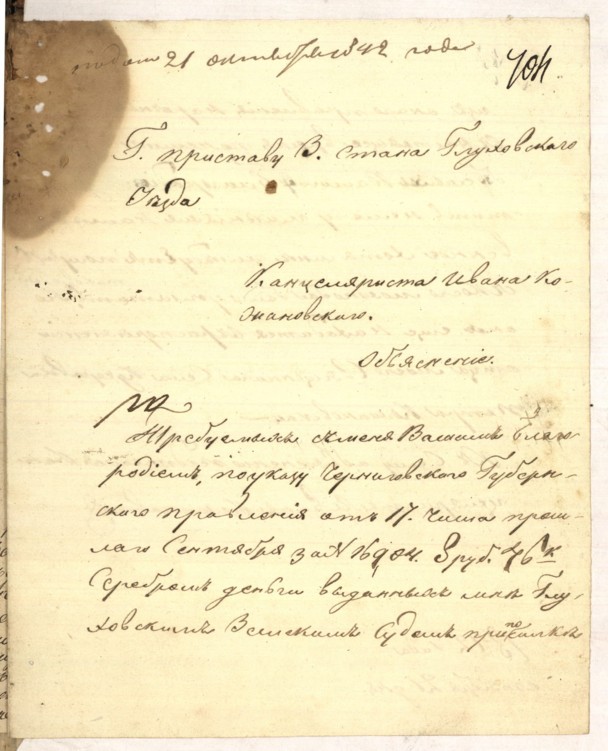 подан 21 октября 1842 года
704
Г. приставу 3. стана Глуховского
Уезда
Канцеляриста Ивана Ко-
жановского.
Объяснение.
Требуемыхъ скменя Вашимъ Благо-
родіемъ, поуказу Черниговского Губерн-
ского правленія отъ 17. числа прош-
лаго Сентября за N 16904. 3 руб. 76 к
Серебромъ денги выданныхъ мне Глу-
ховскимъ Земскимъ Судомъ припосилке